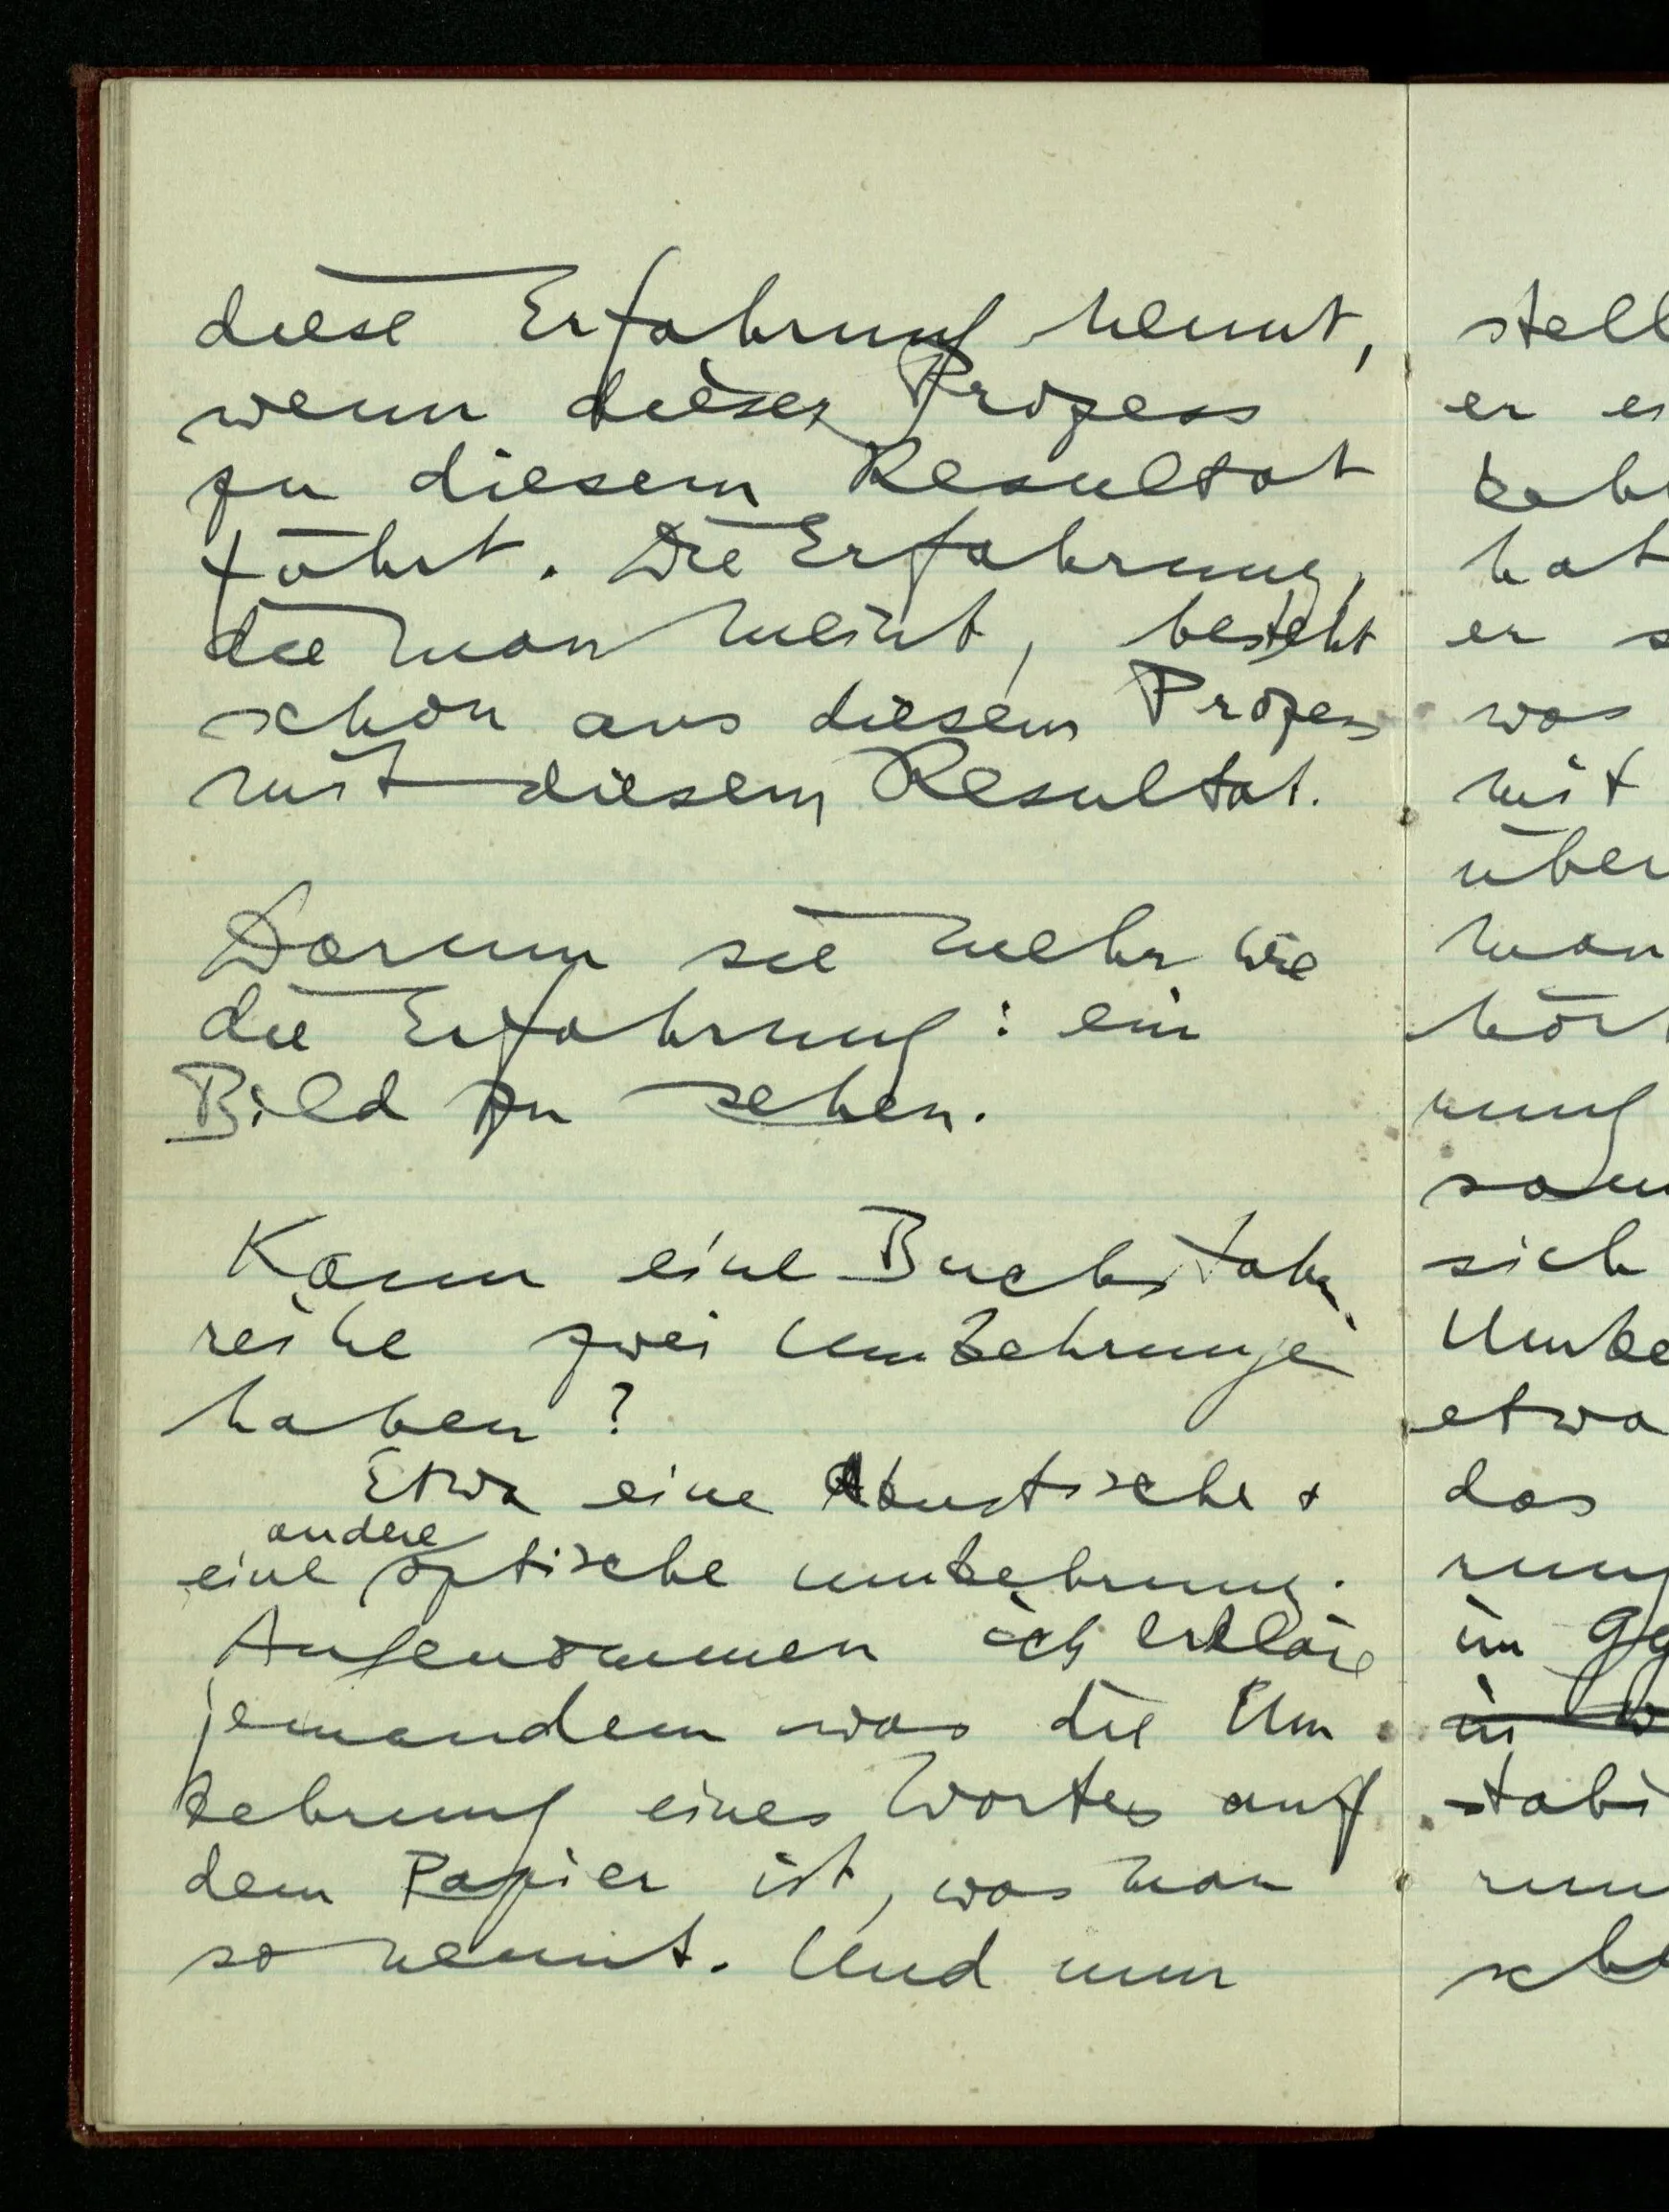 diese Erfahrung nennt,
wenn dieser Prozess
zu diesem Resultat
führt. Die Erfahrung,
die man meint, besteht
schon aus diesem Prozess
mit diesem Resultat.
Darum sie mehr wie
die Erfahrung: ein
Bild zu sehen.
Kann eine Buchstaben-
reihe zwei Umkehrungen
haben?
Etwa eine akustische &
andere
eine optische Umkehrung.
Angenommen ich erkläre
jemandem was die Um
kehrung eines Wortes auf
dem Papier ist, was man
so nennt. Und nun
stell
er es
hat
er s
was
mit
über
man
hör
rung
sich
Umke
etwa
das
rung
im Gg